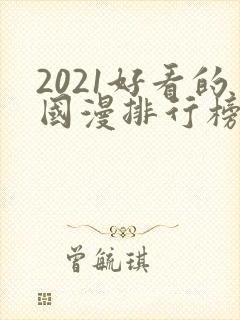 2021好看的
國漫排行榜
曾毓琪